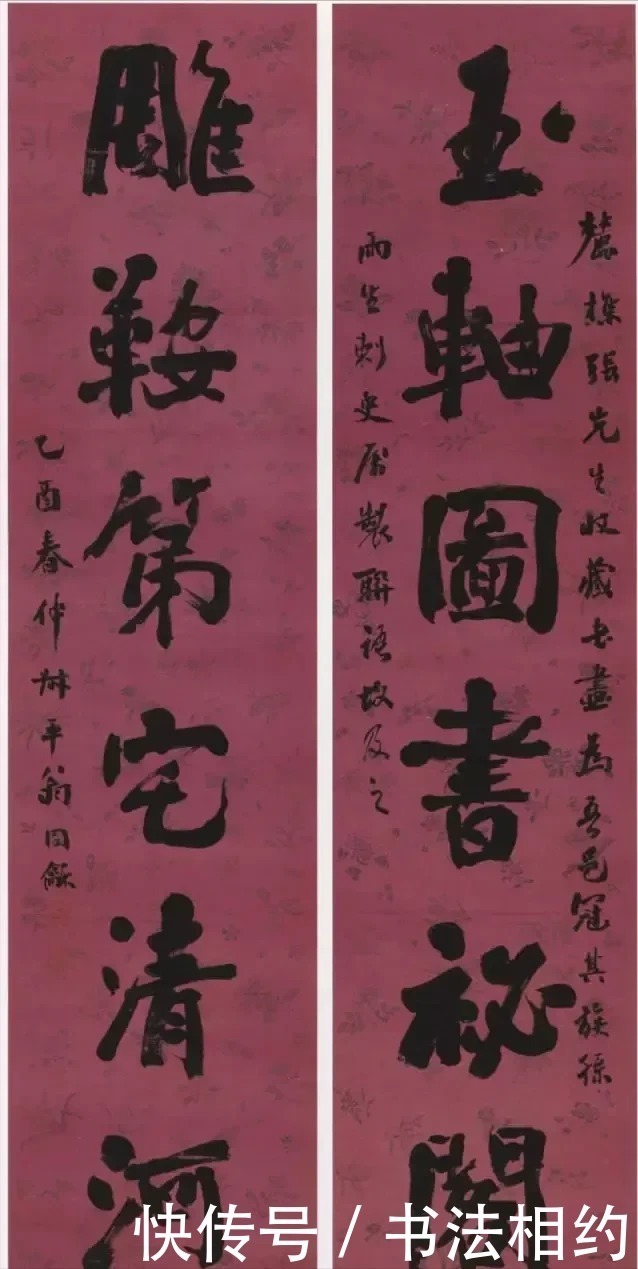 玉軸圖書祕閣
麓樵張先生收藏書畫為吾邑冠其族孫
雨生刺史屬製聯語故及之
雕鞍第宅清河
乙酉春仲叔平翁同龢
快传号/书法相约